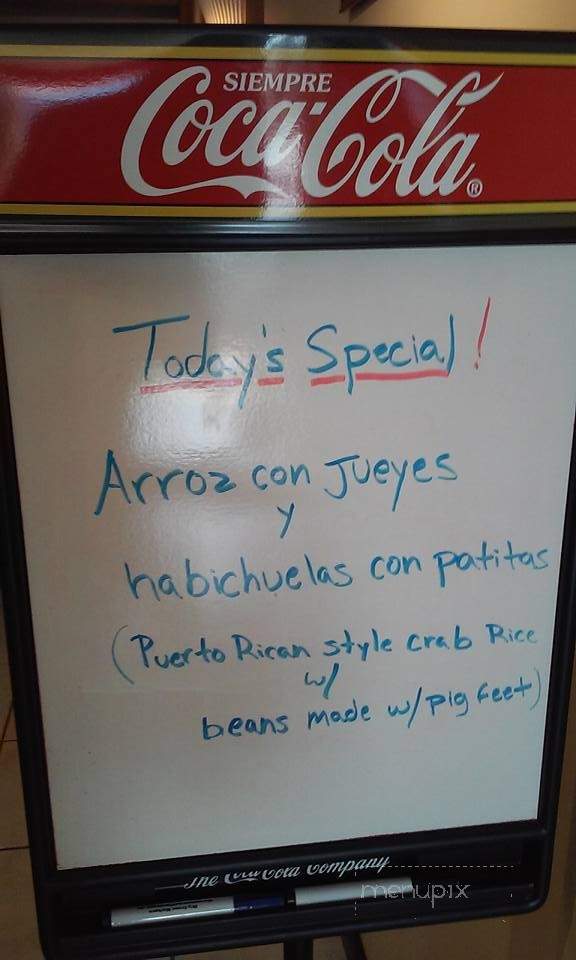 SIEMPRE
Coca-Cola®
Today's Special!
Arroz con Jueyes
y
habichuelas con patitas
(Puerto Rican style crab Rice
w/
beans made w/pig feet)
The Coca-Cola Company
menupix